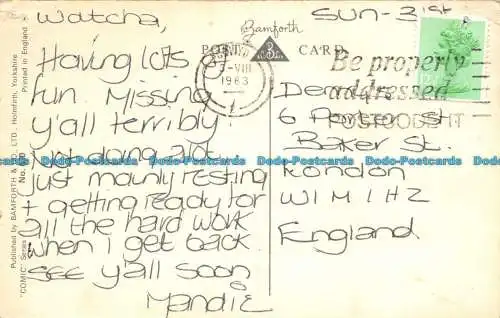 Watcha,
Having lots of
fun. Missing
y'all terribly!
Not doing alot
just mainly resting
+ getting ready for
all the hard work
when I get back
see y'all soon
Mandie
Sun - 31st
Bamforth
POST CARD
VIII
1983
Be properly
addressed
POSTCODE IT
6 Porter St
Baker St.
London
W1M 1HZ
England
Published by BAMFORTH & Co., LTD., Holmfirth, Yorkshire
Printed in England
"COMIC" Series No.
Dodo-Postcards Dodo-Postcards Dodo-Postcards Dodo-Postcards